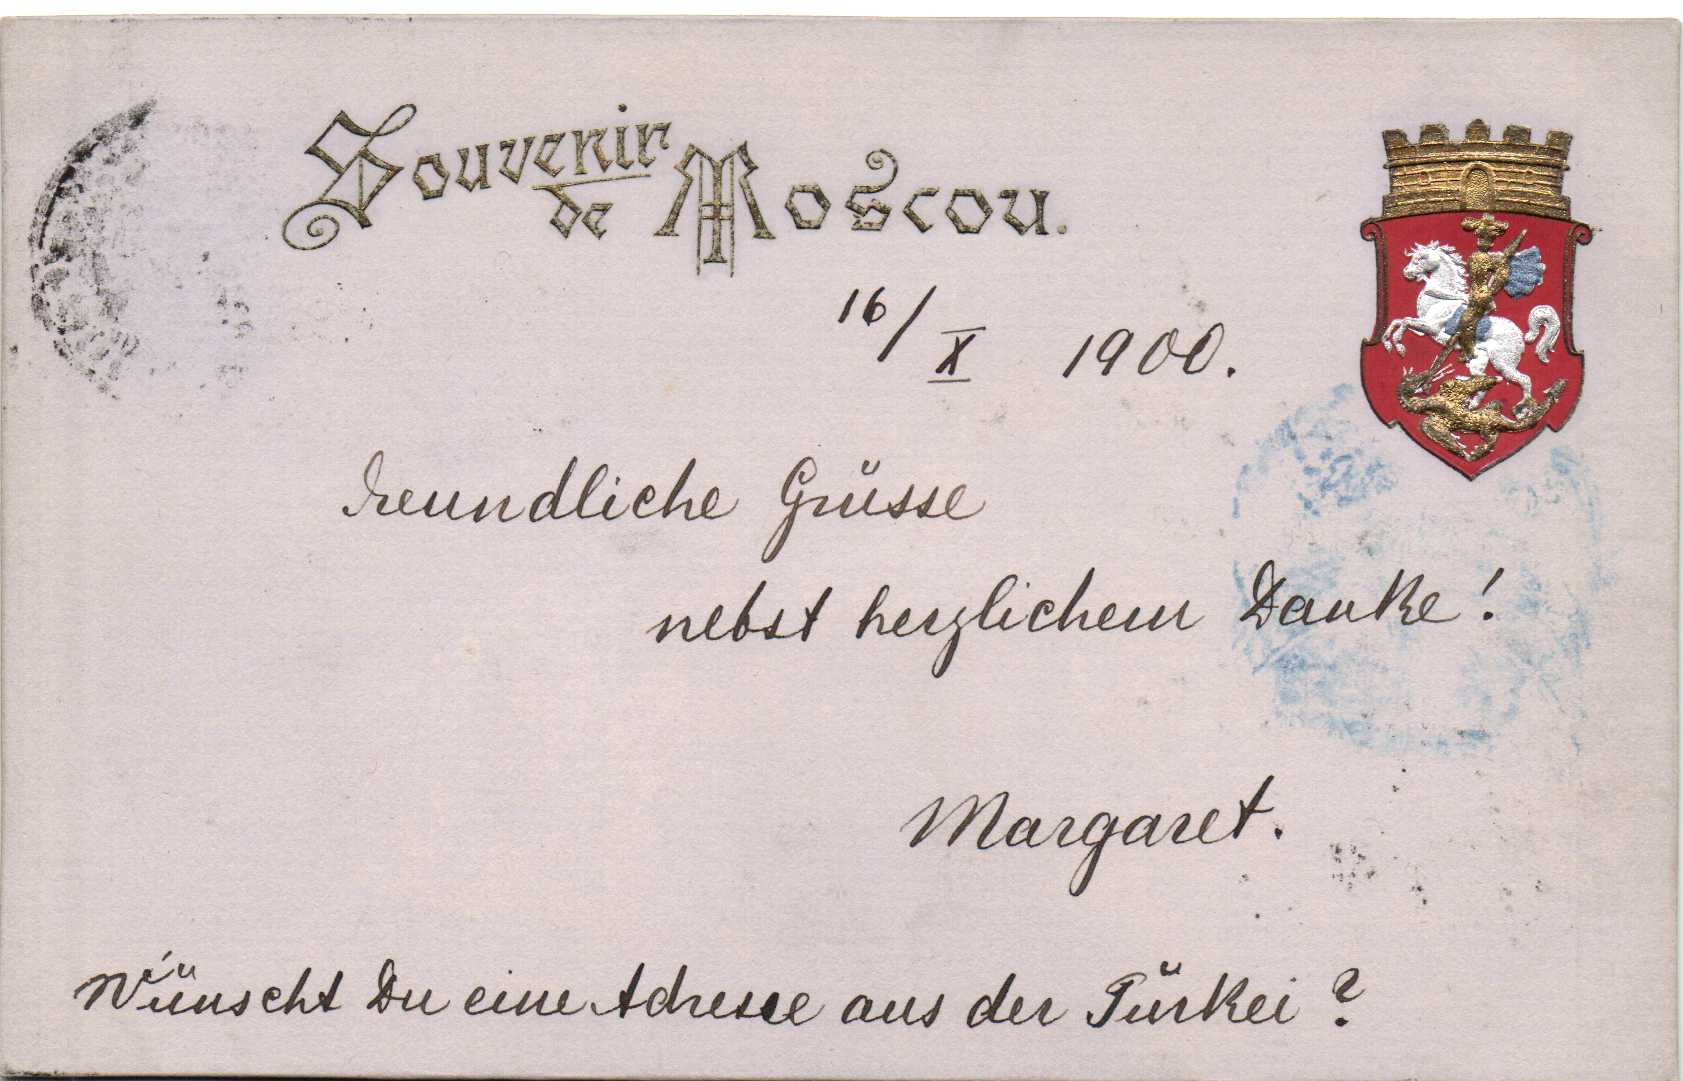 Souvenir de Moscou.
16/X 1900.
freundliche Grüsse
nebst herzlichem Danke!
Margaret.
Wünscht Du eine Adresse aus der Türkei?